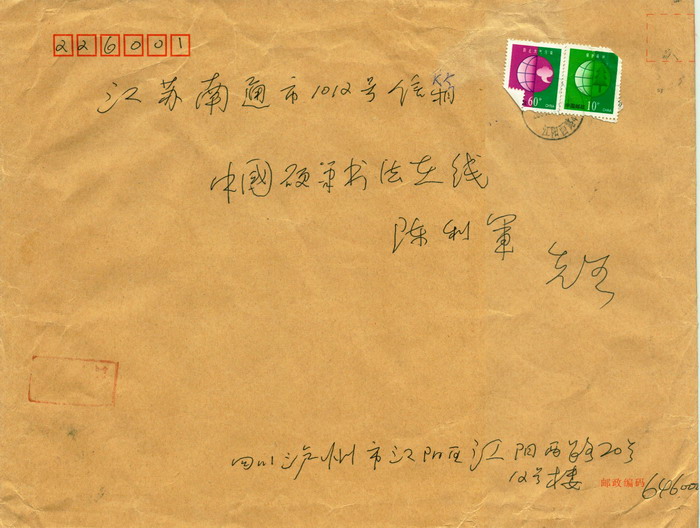 226001
江苏南通市1012号信箱
60分
10分
中國硬筆书法在线
陈利軍
先生
四川泸州市江阳区江阳西路20号
12号楼
邮政编码 646000